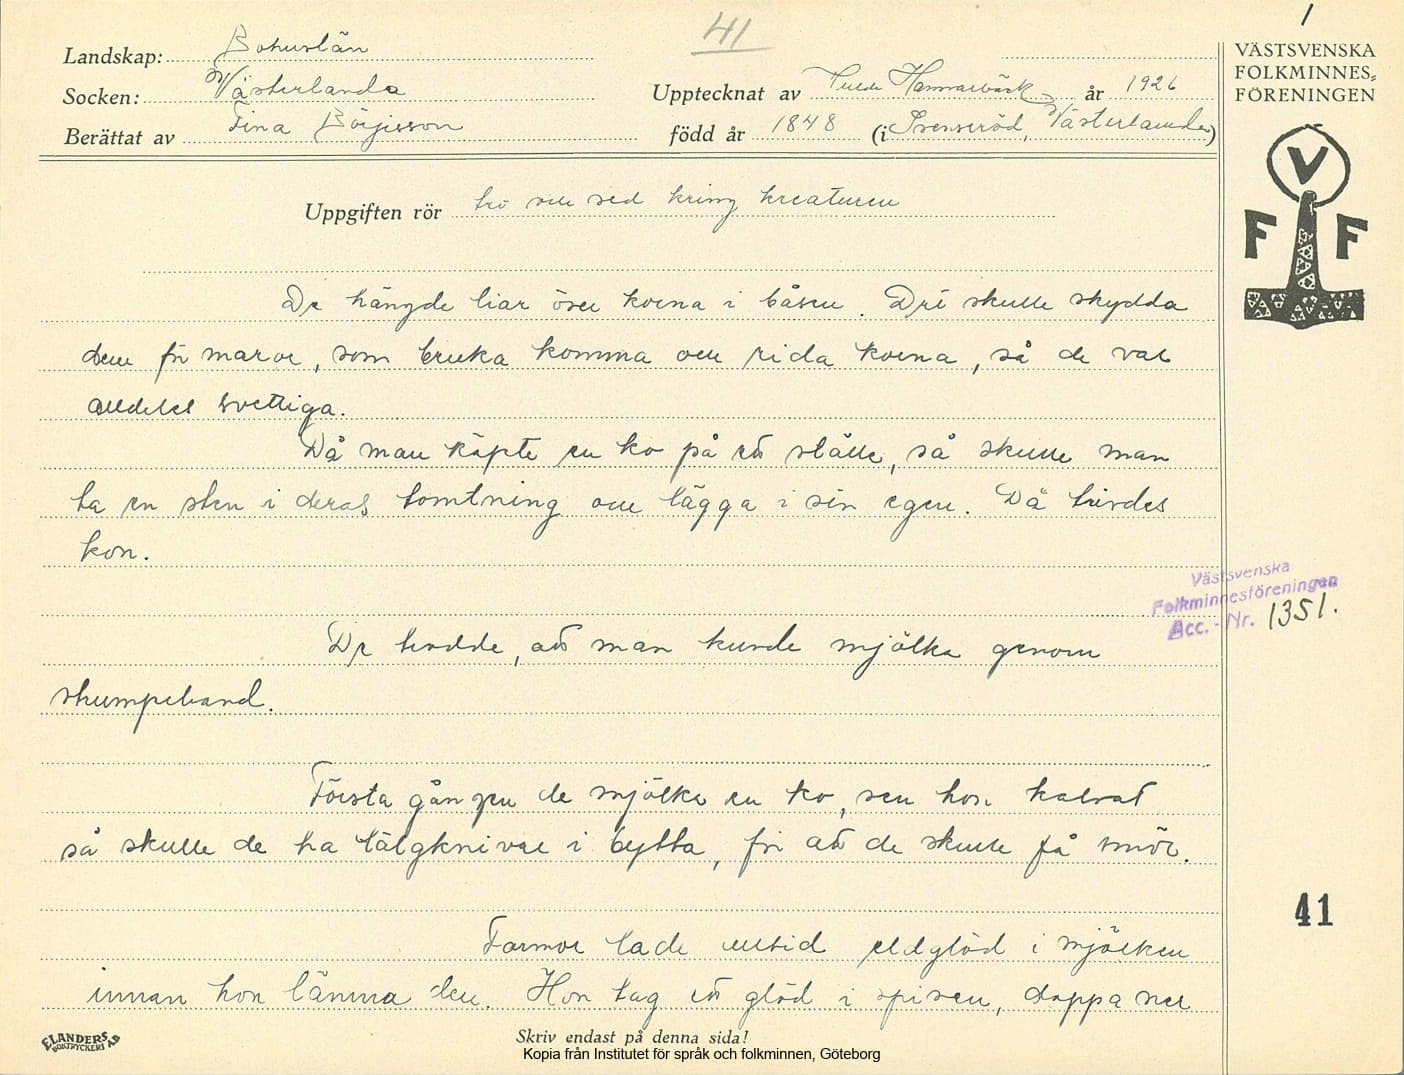 41
1
Landskap: Bohuslän
Socken: Västerlanda
Upptecknat av Hammarbäck år 1926
Berättat av Tina Börjesson
född år 1848 (i Svenseröd, Västerlanda)
VÄSTSVENSKA
FOLKMINNES=
FÖRENINGEN
V
F F
Uppgiften rör tro och sed kring kreaturen
De hängde liar över korna i båsen. Dei skulle skydda
dem för maror, som bruka komma och rida korna, så de var
alldeles svettiga.
Då man köpte en ko på ett ställe, så skulle man
ta en sten i deras tomtning och lägga i sin egen. Då trivdes
kon.
Västsvenska
Folkminnesföreningen
Acc. - Nr. 1351.
De trodde, att man kunde mjölka genom
strumpeband.
Första gången de mjölka en ko, sen hon kalvat
så skulle de ha täljknivar i bytta, för att de skulle få smör.
41
Farmor lade alltid eldglöd i mjölken
innan hon lämna den. Hon tog ett glöd i spisen, doppa ner
ELANDERS BOKTRYCKERI AB
Skriv endast på denna sida!
Kopia från Institutet för språk och folkminnen, Göteborg